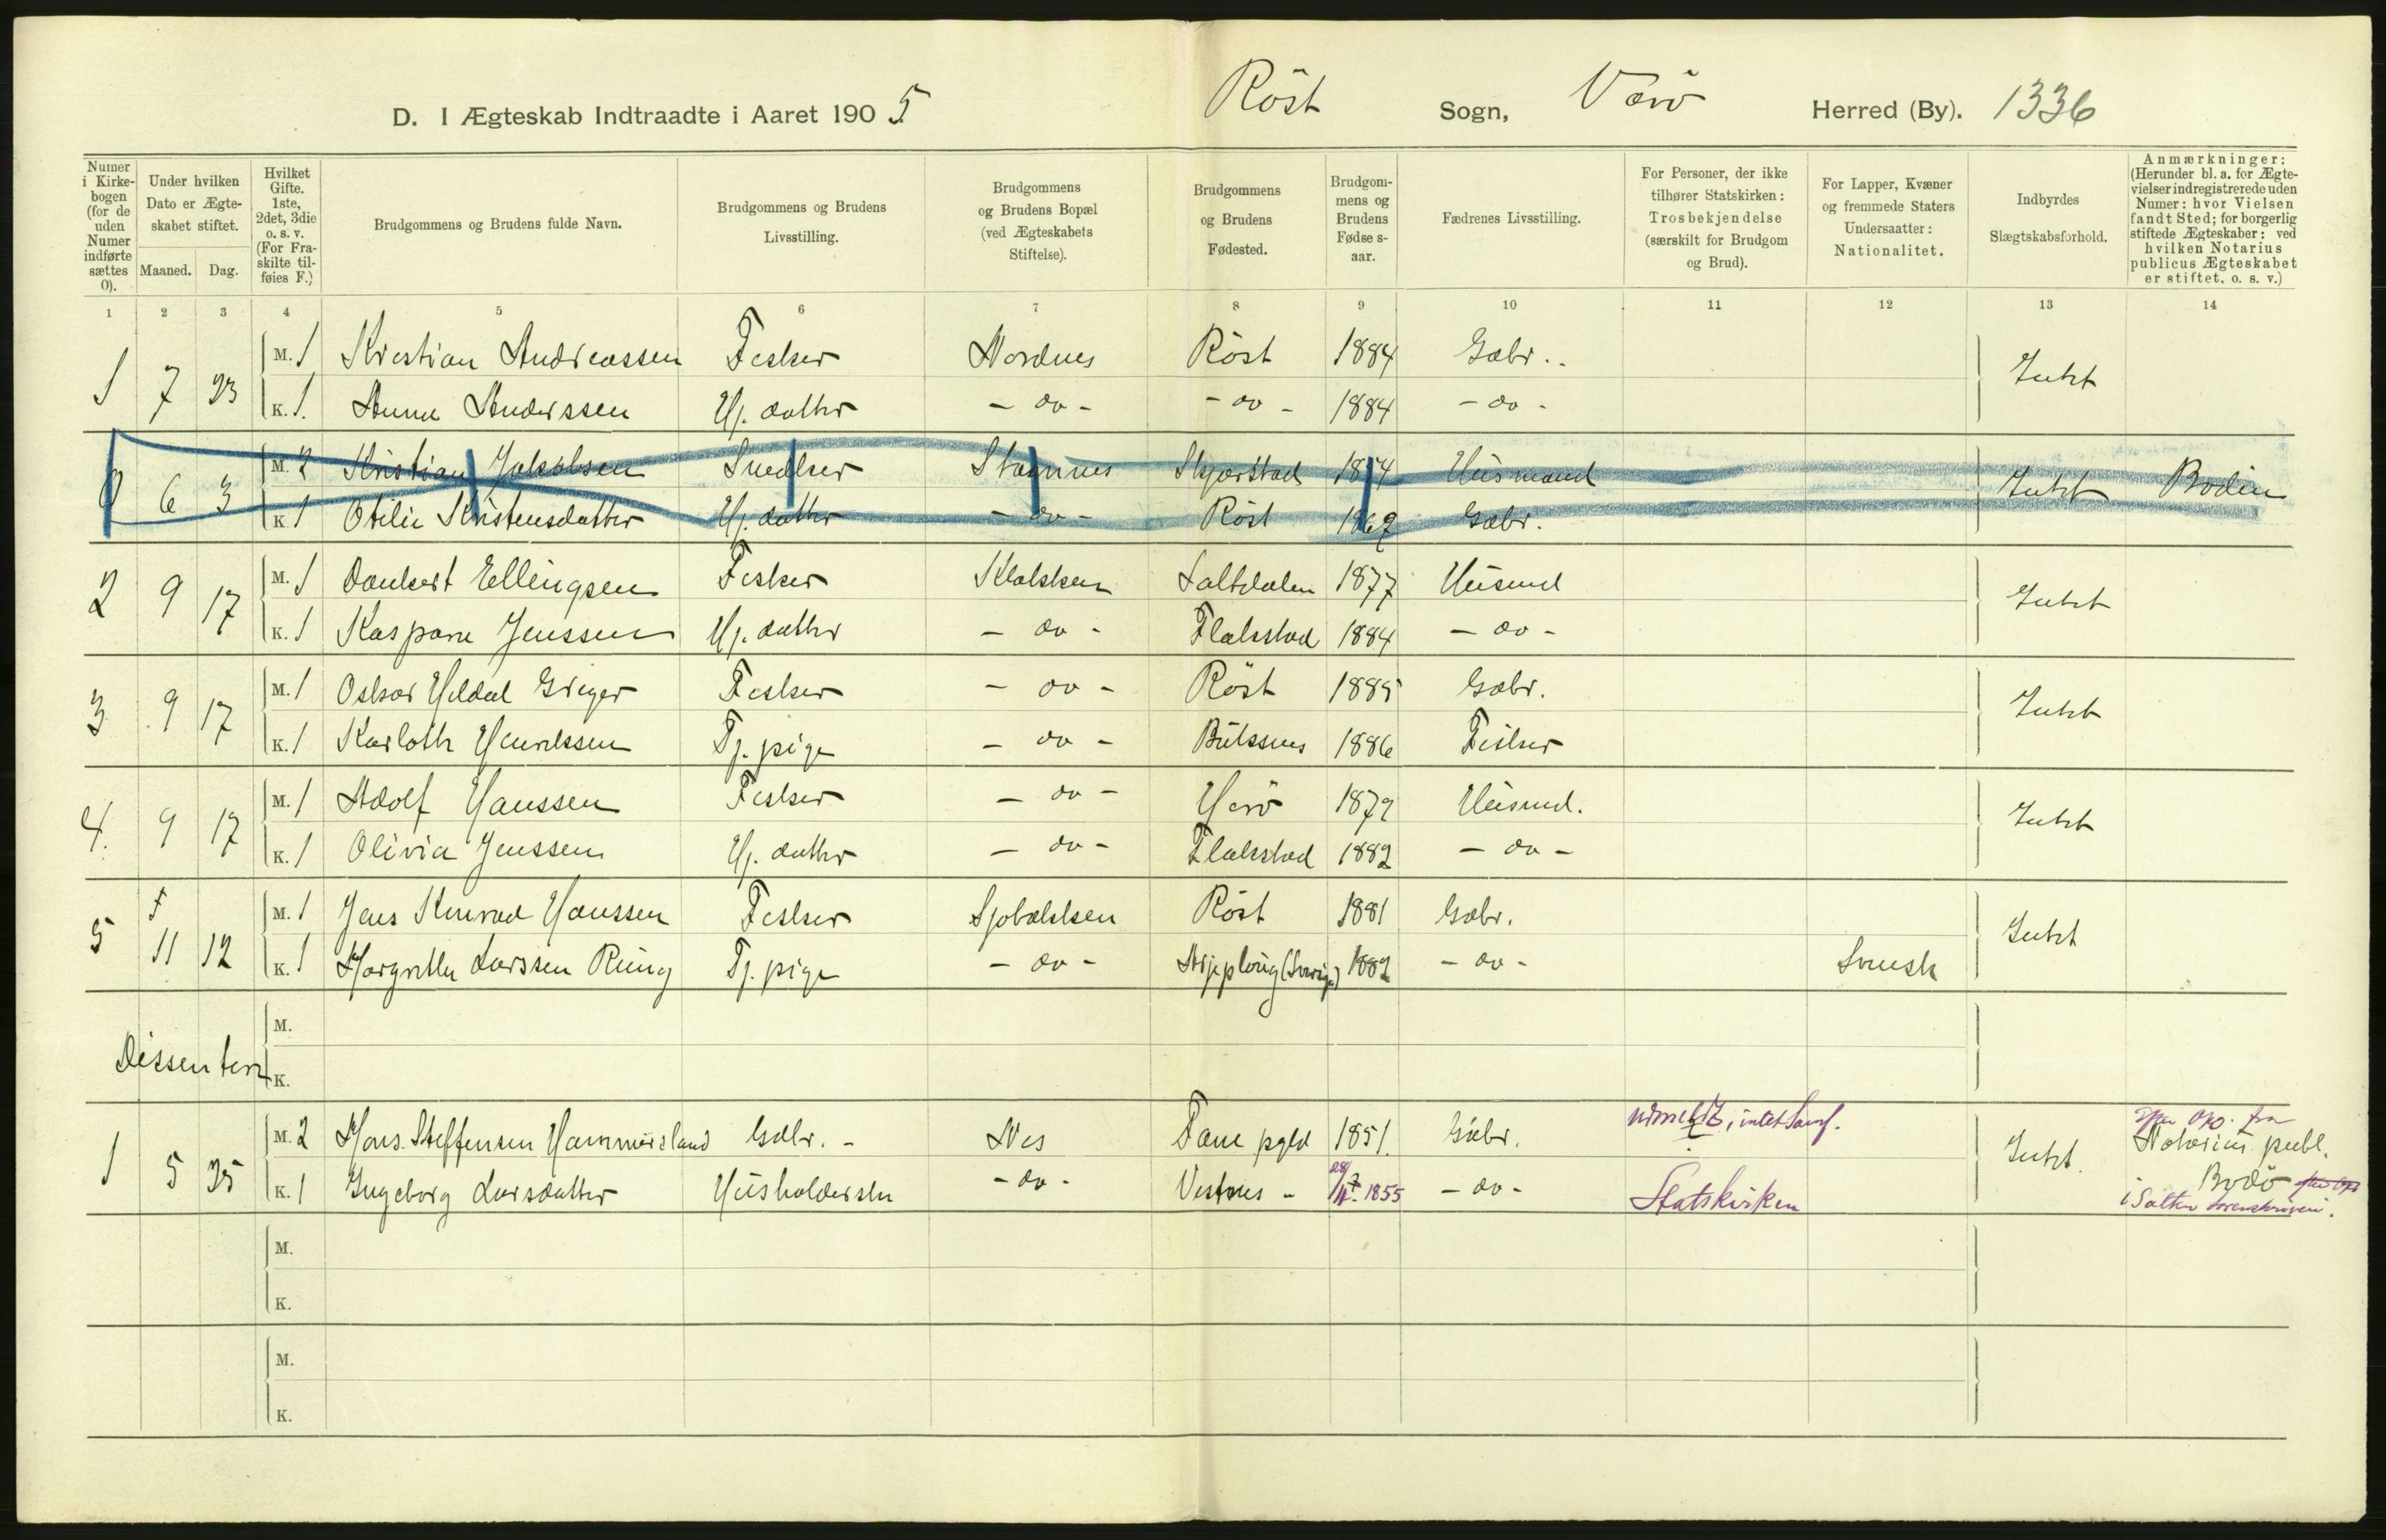 D. I Ægteskab Indtraadte i Aaret 1905. Röst Sogn, Værö Herred (By). 1336
Numer i Kirkebogen (for de uden Numer indførte sættes 0).
Under hvilken Dato er Ægteskabet stiftet.
Maaned. Dag.
Hvilket Gifte. 1ste, 2det, 3die o. s. v. (For Fraskilte tilføies F.)
Brudgommens og Brudens fulde Navn.
Brudgommens og Brudens Livsstilling.
Brudgommens og Brudens Bopæl (ved Ægteskabets Stiftelse).
Brudgommens og Brudens Fødested.
Brudgommens og Brudens Fødselsaar.
Fædrenes Livsstilling.
For Personer, der ikke tilhører Statskirken: Trosbekjendelse (særskilt for Brudgom og Brud).
For Lapper, Kvæner og fremmede Staters Undersaatter: Nationalitet.
Indbyrdes Slægtskabsforhold.
Anmærkninger: (Herunder bl. a. for Ægtevielser indregistrerede uden Numer: hvor Vielsen fandt Sted; for borgerlig stiftede Ægteskaber: ved hvilken Notarius publicus Ægteskabet er stiftet, o. s. v.)
1 2 3 4 5 6 7 8 9 10 11 12 13 14
1 7 23 M. 1 Kristian Andreassen Fisker Nordnes Röst 1884 Gbr. Intet
K. 1. Anna Anderssen Hj. datter - do - - do - 1884 - do -
0 6 3 M. 2 Kristian Jakobsen Snedker Stavnes Skjerstad 1874 Husmand Intet Bodin
K. 1 Otilie Kristensdatter Hj. datter - do - Röst 1869 Gbr.
2 9 17 M. 1 Dankert Ellingsen Fisker Klakken Saltdalen 1877 Husmd Intet
K. 1 Kaspara Jenssen Hj. datter - do - Flakstad 1884 - do -
3 9 17 M. 1 Oskar Hildal Greger Fisker - do - Röst 1885 Gbr. Intet
K. 1 Karloth Henrikssen Tj. pige - do - Buksnes 1886 Fisker
4. 9 17 M. 1 Adolf Hanssen Fisker - do - Herö 1879 Husmd. Intet
K. 1 Olivia Jenssen Hj. datter - do - Flakstad 1882 - do -
5 11 12 M. 1 Jens Konrad Hanssen Fisker Sjobakken Röst 1881 Gbr. Intet
K. 1 Margrethe Larssen Ring Tj. pige - do - Arjeploug (Sverige) 1882 - do - Svensk
M.
Dissentere K.
1 5 25 M. 2 Hans Steffensen Hammersland Gbr. - Nes Fane pgld 1851. Gbr. udmeldt, intet Samf. Intet. Notarius publ.
K. 1 Ingeborg Larsdatter Husholderske - do - Vestnes - 1855 - do - Statskirken Bodö
i Salten Sorenskriveri.
M.
K.
M.
K.